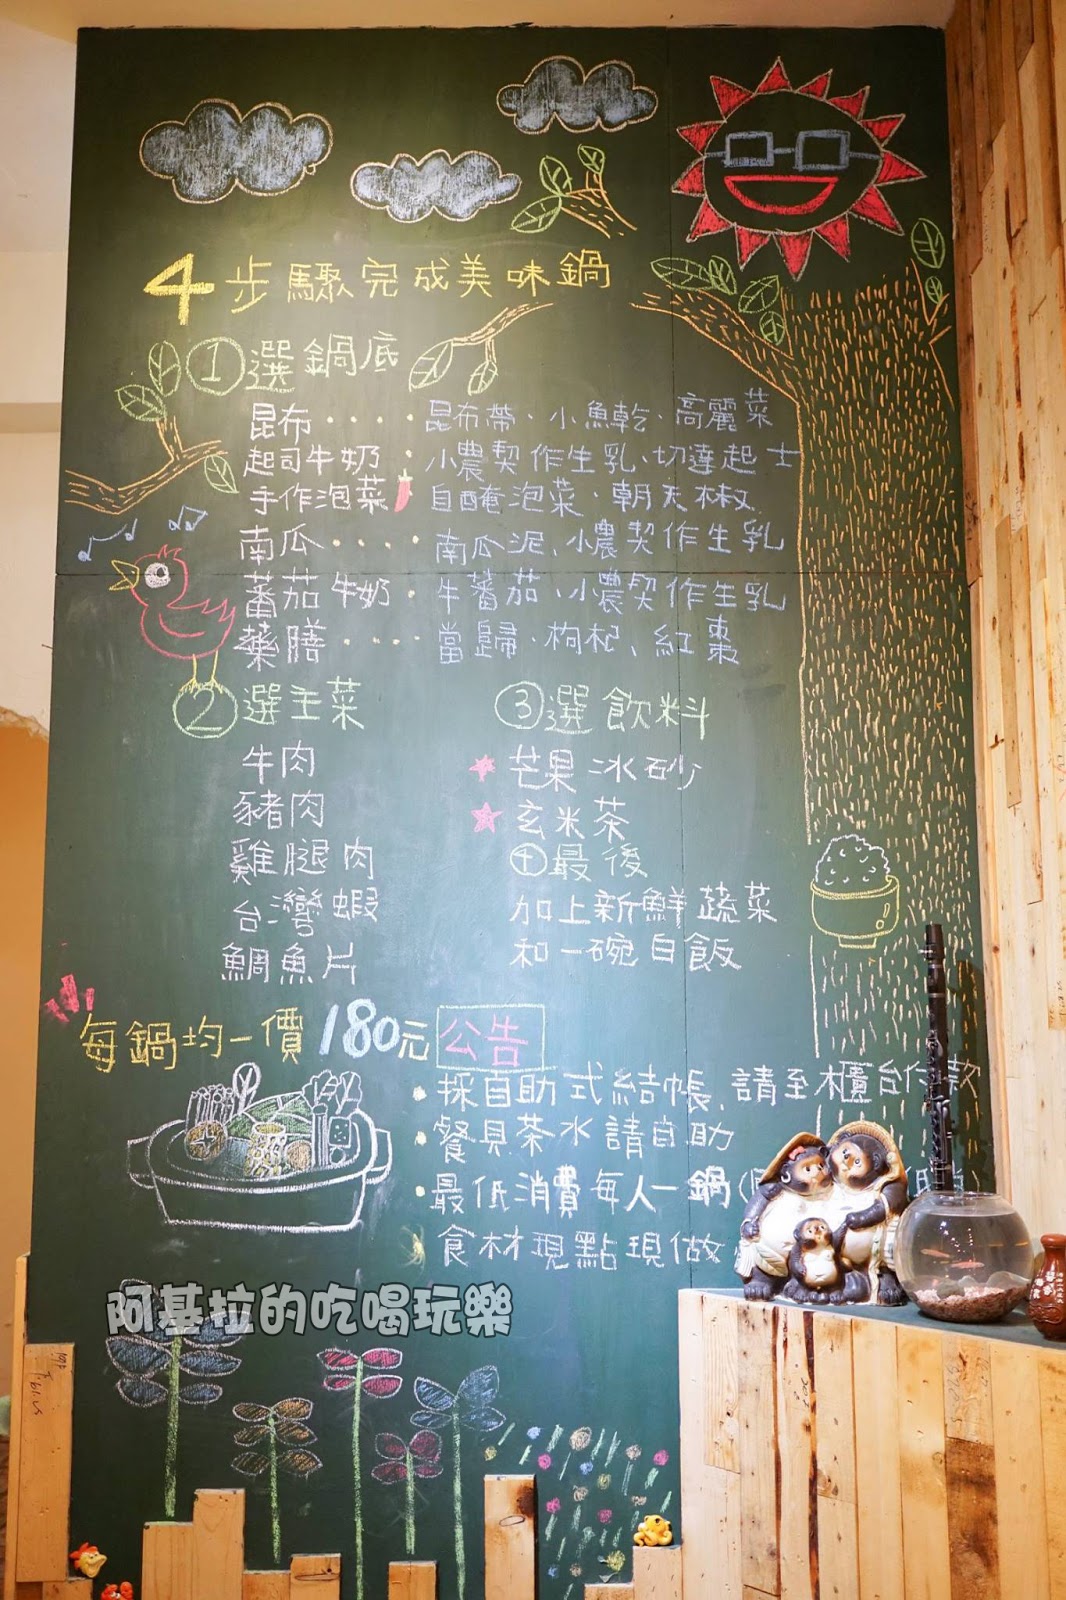 4步驟完成美味鍋
①選鍋底
昆布····昆布帶、小魚乾、高麗菜
起司牛奶·小農契作生乳、切達起士
手作泡菜 自醃泡菜、朝天椒
南瓜····南瓜泥、小農契作生乳
蕃茄牛奶·牛蕃茄、小農契作生乳
藥膳····當歸、枸杞、紅棗
②選主菜
牛肉
豬肉
雞腿肉
台灣蝦
鯛魚片
③選飲料
芒果冰砂
玄米茶
④最後
加上新鮮蔬菜
和一碗白飯
每鍋均一價180元
公告
·採自助式結帳,請至櫃台付款
·餐具茶水請自助
·最低消費每人一鍋(
·食材現點現做
阿基拉的吃喝玩樂